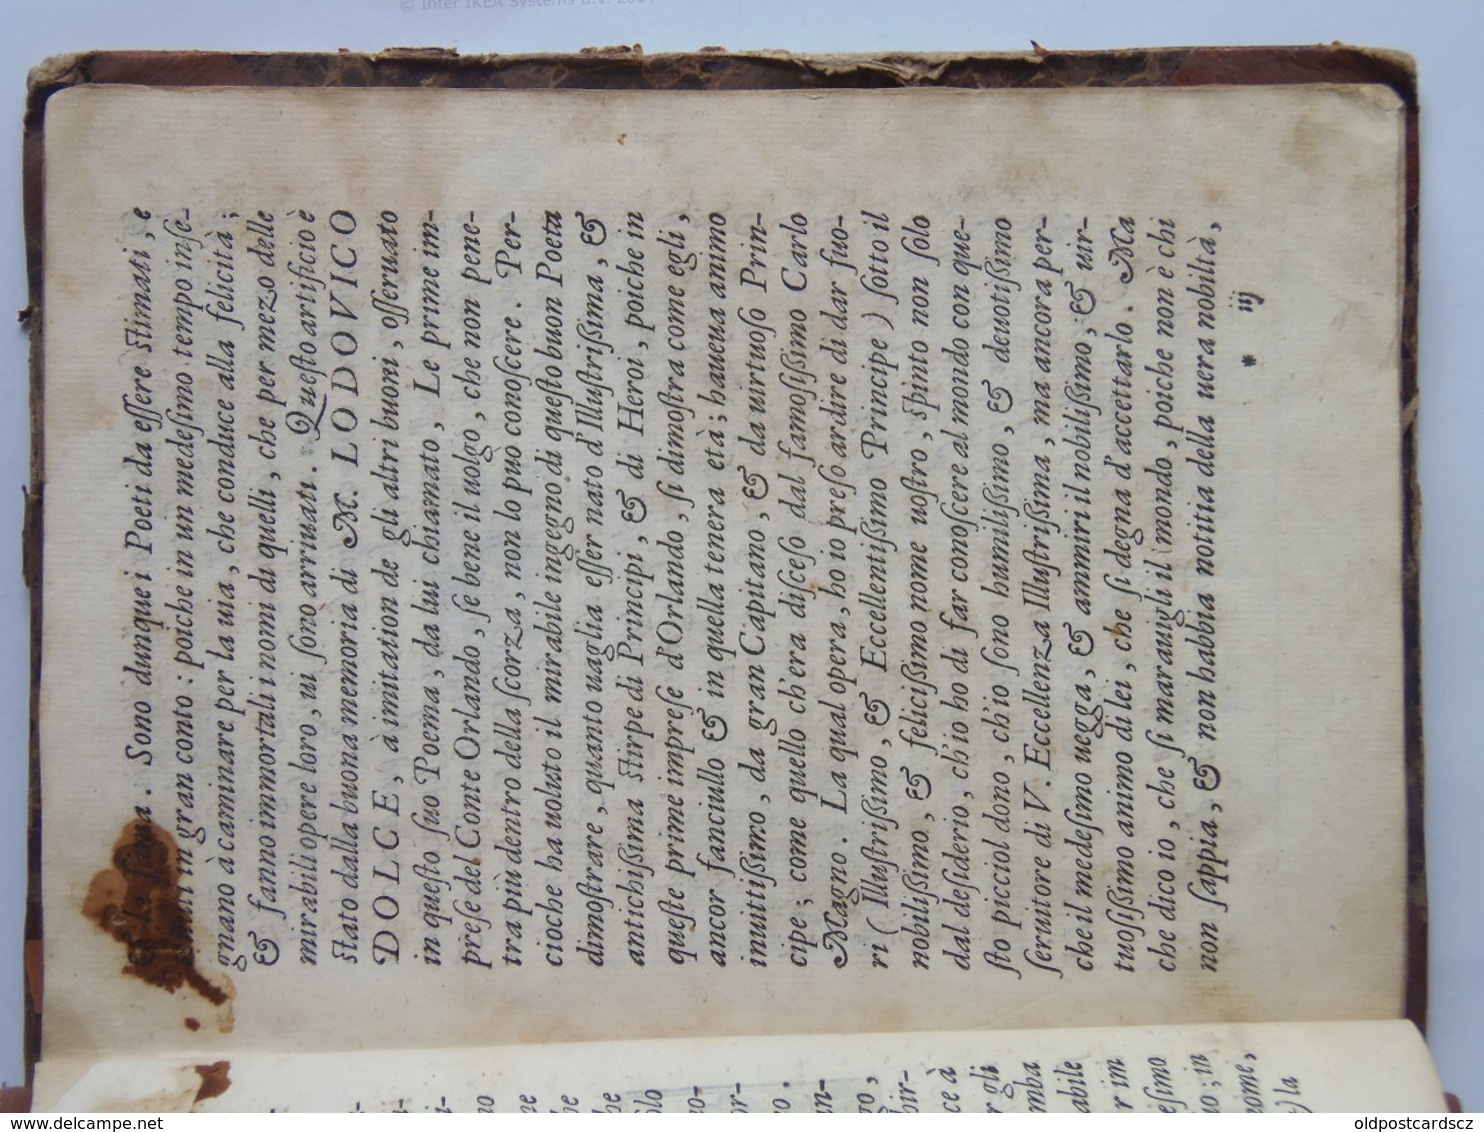 © Inter IKEA Systems B.V.
& la fama. Sono dunque i Poeti da eſſere ſtimati, e
in gran conto: poiche in un medeſimo tempo inſe-
gnano à caminare per la uia, che conduce alla felicità;
& fanno immortali i nomi di quelli, che per mezo delle
mirabili opere loro, ui ſono arriuati. Queſto artificio è
ſtato dalla buona memoria di M. LODOVICO
DOLCE, à imitation de gli altri buoni, oſſeruato
in queſto ſuo Poema, da lui chiamato, Le prime im-
preſe del Conte Orlando, ſe bene il uolgo, che non pene-
tra più dentro della ſcorza, non lo può conoſcere. Per-
cioche ha uoluto il mirabile ingegno di queſto buon Poeta
dimoſtrare, quanto uaglia eſſer nato d'Illuſtriſsima, &
antichiſsima ſtirpe di Principi, & di Heroi, poiche in
queſte prime impreſe d'Orlando, ſi dimoſtra come egli,
ancor fanciullo & in quella tenera età; haueua animo
inuitiſsimo, da gran Capitano, & da uirtuoſo Prin-
cipe; come quello ch'era diſceſo dal famoſiſsimo Carlo
Magno. La qual opera, ho io preſo ardire di dar fuo-
ri (Illuſtriſsimo, & Eccellentiſsimo Principe) ſotto il
nobiliſsimo, & feliciſsimo nome uoſtro, ſpinto non ſolo
dal deſiderio, ch'io ho di far conoſcere al mondo con que-
ſto picciol dono, ch'io ſono humiliſsimo, & deuotiſsimo
ſeruitore di V. Eccellenza Illuſtriſsima, ma ancora per-
che il medeſimo uegga, & ammiri il nobiliſsimo, & uir-
tuoſiſsimo animo di lei, che ſi degna d'accettarlo. Ma
che dico io, che ſi marauigli il mondo, poiche non è chi
non ſappia, & non habbia notitia della uera nobiltà,
* iij
oldpostcards.cz
oldpostcardscz